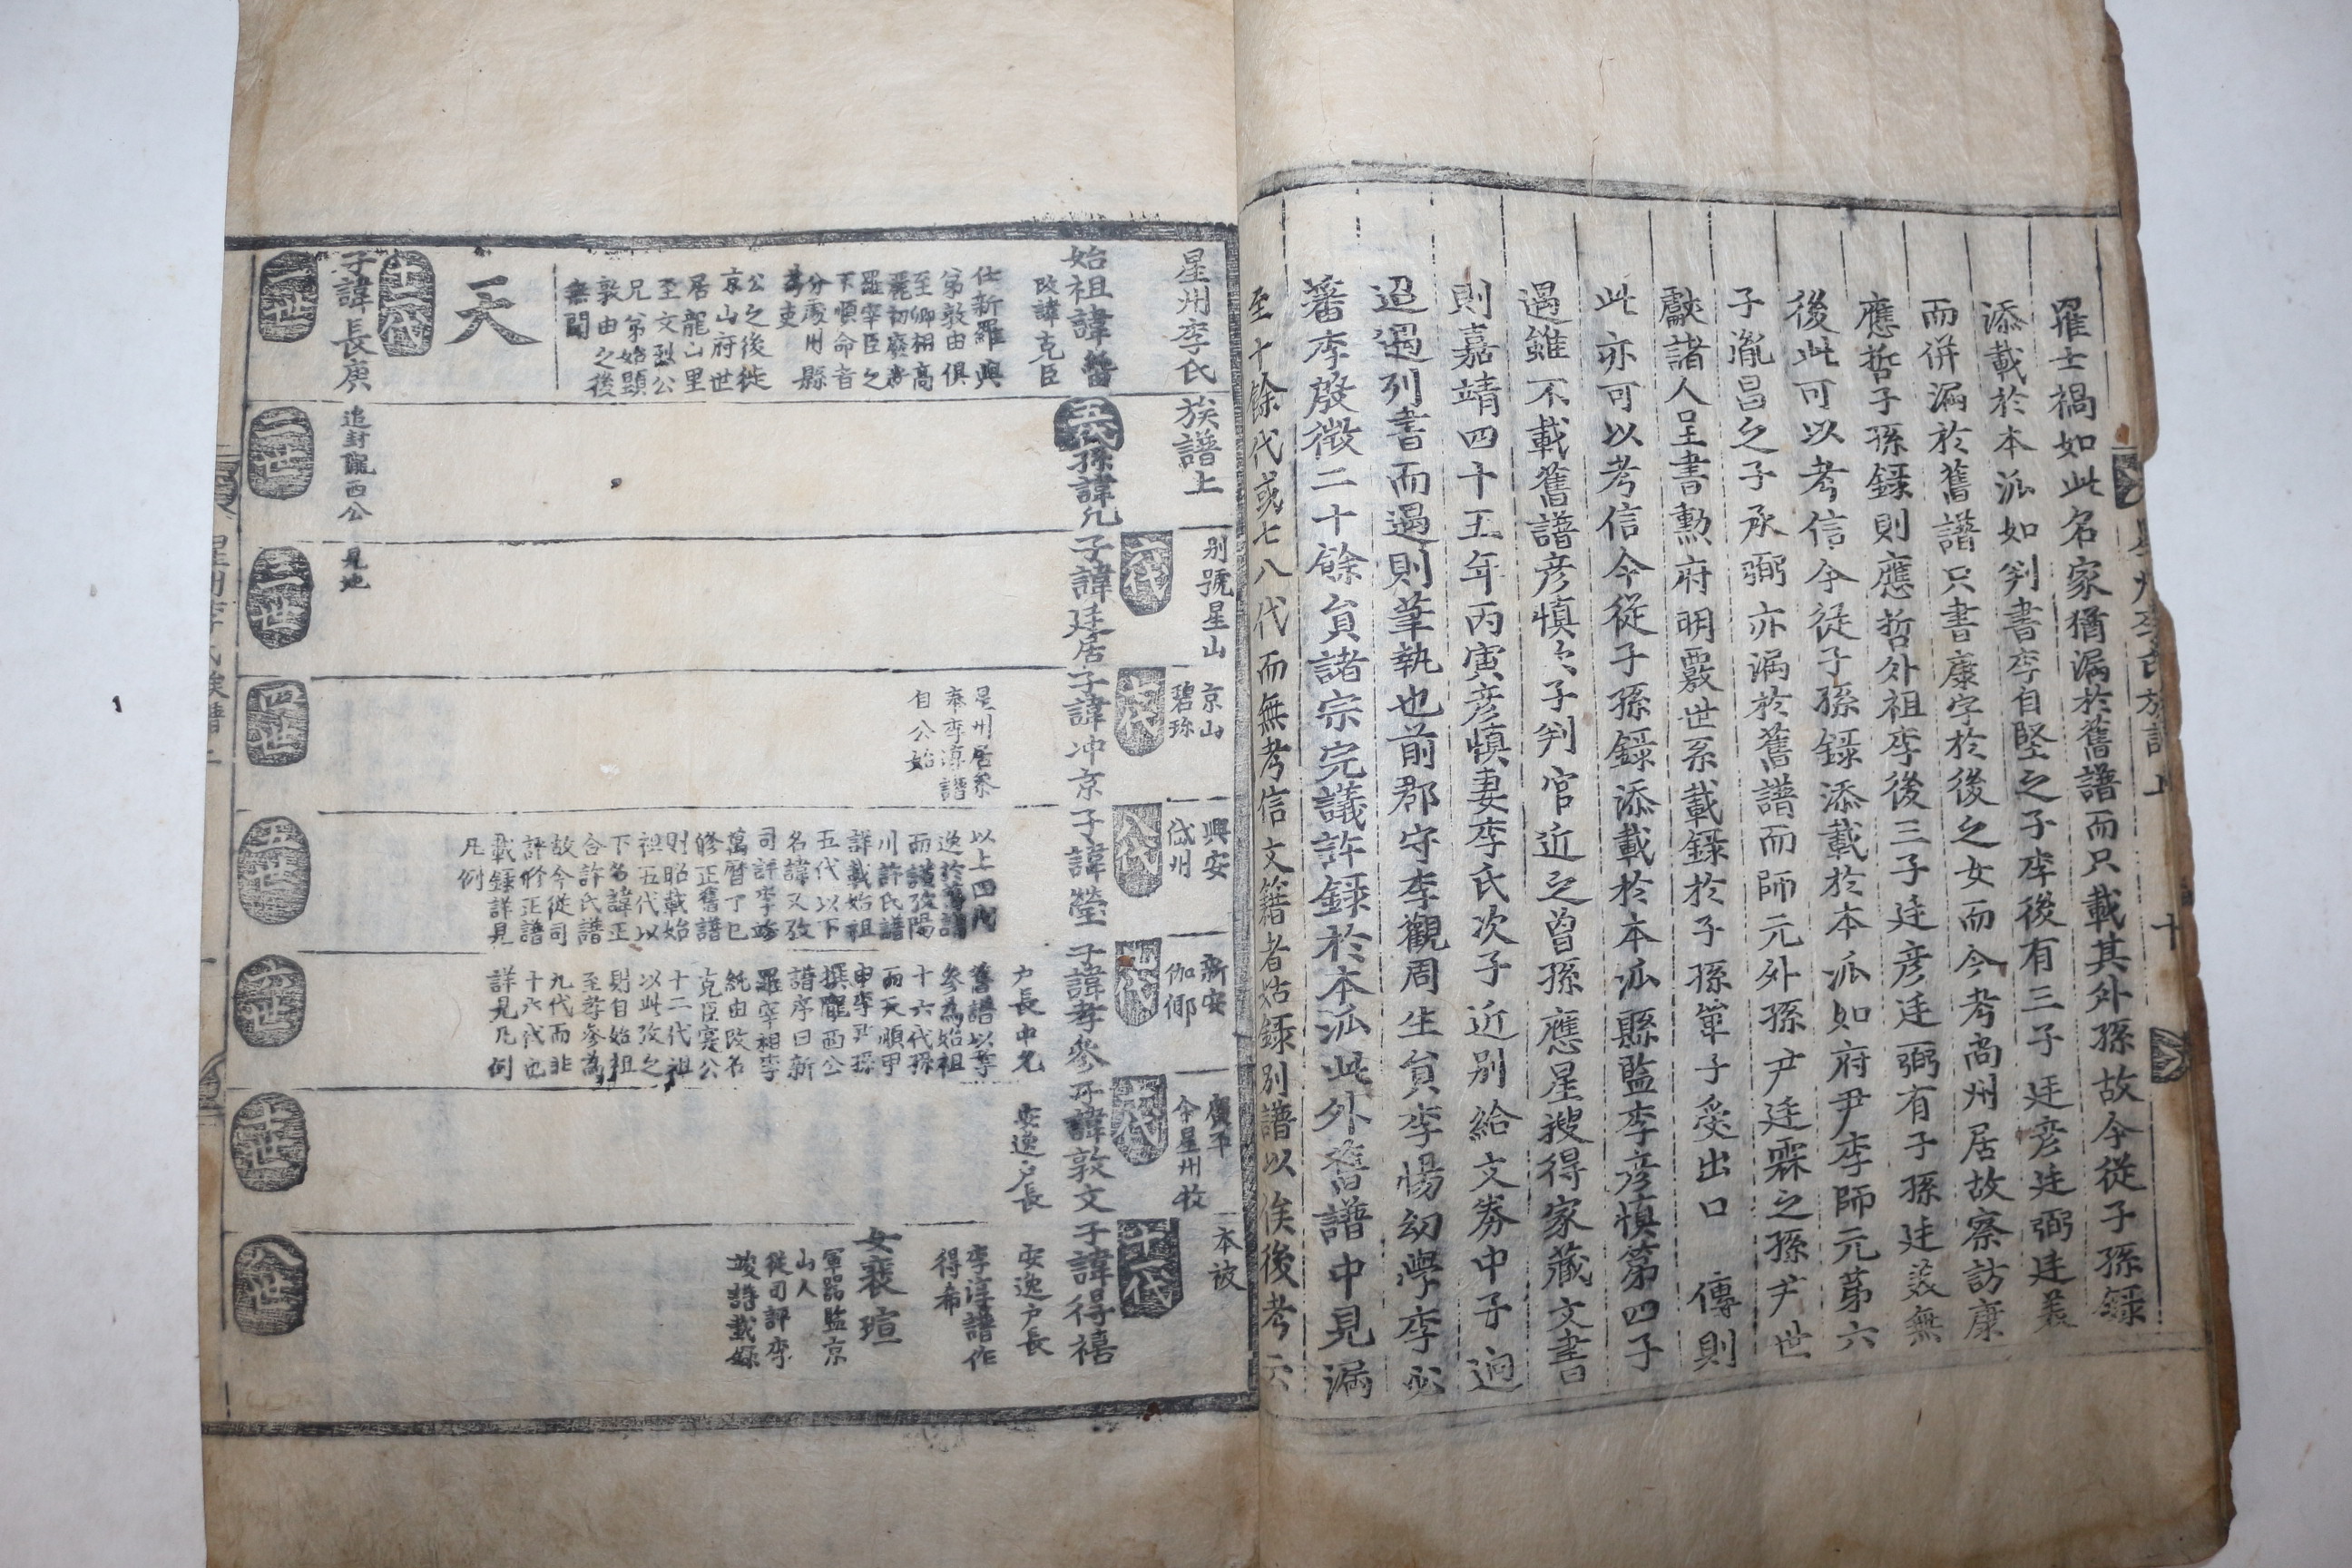 羅士禍如此名家猶漏於舊譜而只載其外孫故今從子孫錄
添載於本派如判書李自堅之子李後有三子廷彦廷弼廷義
而併漏於舊譜只書康字於後之女而今考尚州居故察訪康
應哲子孫錄則應哲外祖李後三子廷彦廷弼有子孫廷義無
後此可以考信今從子孫錄添載於本派如府尹李師元第六
子胤昌之子承弼亦漏於舊譜而師元外孫尹廷霖之孫尹世
獻諸人呈書勲府明覈世系載錄於子孫單子受出口傳則
此亦可以考信今從子孫錄添載於本派縣監李彦慎第四子
遇雖不載舊譜彦慎次子判官近之曾孫應星搜得家藏文書
則嘉靖四十五年丙寅彦慎妻李氏次子近别給文券中子迥
迢遇列書而遇則筆執也前郡守李觀周生負李惕幼學李必
蕃李殷徴二十餘負諸宗完議許録於本派此外舊譜中見漏
至十餘代或七八代而無考信文籍者姑録别譜以俟後考云
星州李氏族譜上 十
星州李氏
族譜上
别號星山
京山
碧珍
興安
岱州
新安
伽倻
廣平
今星州牧
本被
始祖諱
改諱克臣
五代
孫諱凡
六代
子諱廷居
七代
子諱冲京
八代
子諱瑩
九代
子諱孝參
十代
子諱敦文
十一代
子諱得禧
仕新羅與
弟敦由俱
至卿相高
麗初廢
羅宰臣之
下順命者
分處州縣
爲吏
公之後徙
京山府世
居龍山里
至文烈公
兄弟始顯
敦由之後
無聞
星州居參
奉李淳譜
自公始
以上四代
逸於舊譜
而謹攷陽
川許氏譜
詳載始祖
五代以下
名諱又攷
司評李
萬曆丁巳
修正舊譜
則昭載始
祖五代以
下名諱正
合許氏譜
故今從司
評修正譜
載錄詳見
凡例
戶長中尹
舊譜以孝
參爲始祖
十六代孫
而天順甲
申李
撰隴西公
譜序曰新
羅宰相李
純由改名
克臣寔公
十二代祖
以此攷之
則自始祖
至孝參爲
九代而非
十六代也
詳見凡例
安逸戶長
安逸戶長
李淳譜作
得希
女裵瑄
軍器監京
山人
從司評李
譜載錄
天
十二代
子諱長庚
追封隴西公
見地
一世
二世
三世
四世
五世
六世
七世
八世